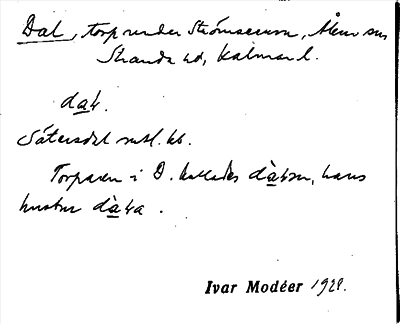 Dal, torp under Strömserum, Ålem sn
Stranda hd, Kalmar l.
dɑ̀ɫ.
Sätersdal enl. kb.
Torparen i D. kallades dàɫən, hans
hustru dàɫa.
Ivar Modéer 1928.